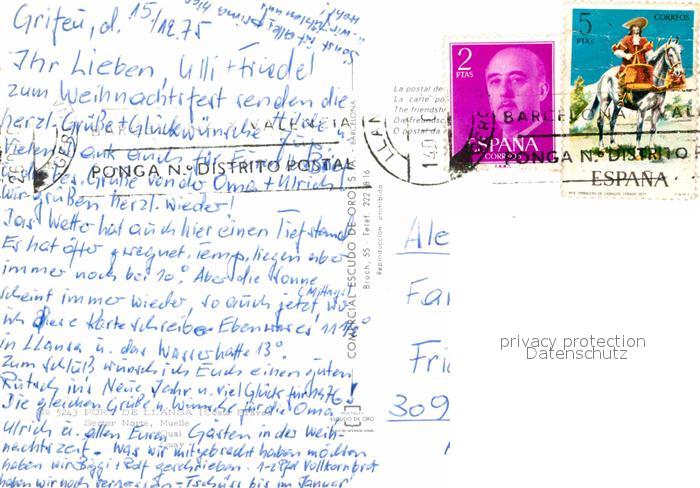 Grifeu, d. 15/12.75
Ihr Lieben, Ulli + Friedel
zum Weihnachtsfest senden die
herzl. Grüße + Glückwünsche
Vielen Dank auch für
Grüße von do Oma + Ulrich!
wir grüßen herzl. wieder!
Das Wetter hat auch hier einen Tiefstand
Es hat öfter geregnet, Temp. liegen aber
immer noch bei 10°. Aber die Sonne
scheint immer wieder, so auch jetzt, wo (Mittags)
ich diese Karte schreibe. Eben war es 11 1/2°
in Llansa u. das Wasser hatte 13°.
Zum Schluß wünsch ich Euch einen guten
Rutsch ins Neue Jahr u. viel Glück für 1976!
Die gleichen Grüße u. Wünsche für die Oma,
Ulrich u. allen Euren Gästen in der Weih-
nachtszeit. Was wir mitgebracht haben möchten
haben wir Biggi + Rolf geschrieben. 1-2 Pfd Vollkornbrot
haben wir noch vergessen - Tschüss bis im Januar!
VALENCIA
PONGA N.º DISTRITO POSTAL
Nº 5243 PORT DE LLANSA (Costa Brava)
Sector Norte, Muelle
Quai
Quay
COMERCIAL ESCUDO DE ORO, S.A. - BARCELONA
Bruch, 55 - Teléf.
Reproducción prohibida
ESCUDO DE ORO
La postal de
La carte po
The friendsh
Die Freundsc
O postal da
2
PTAS
ESPAÑA
CORREOS
5
PTAS
CORREOS
ESPAÑA
BARCELONA
PONGA N.º DISTRITO PO
LLAN
Ale
Fa
Fri
309
privacy protection
Datenschutz